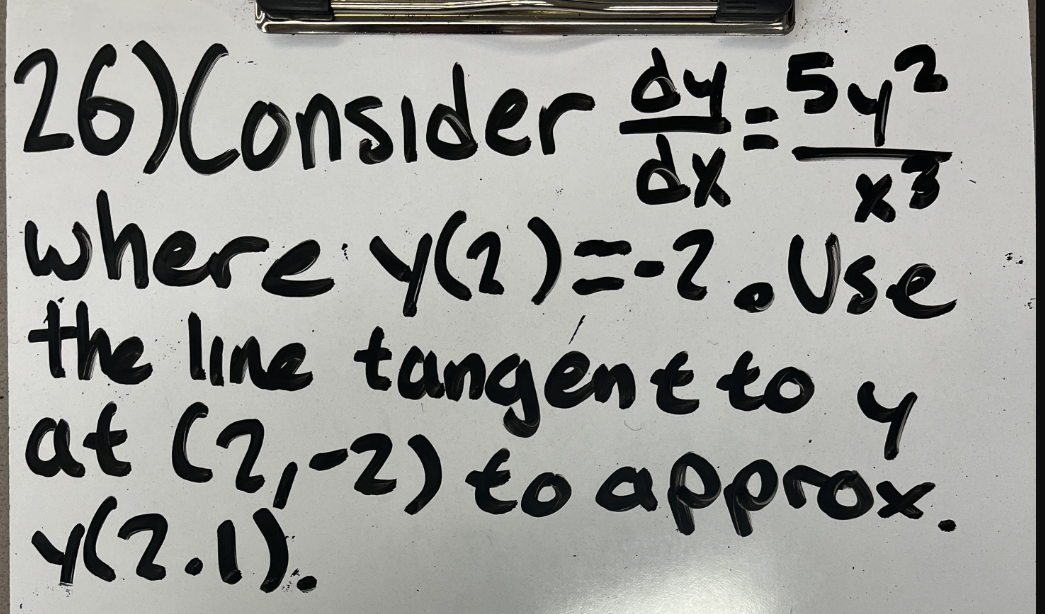 26) Consider dy/dx = 5y²/x³
where y(2)=-2. Use
the line tangent to y
at (2,-2) to approx.
y(2.1).